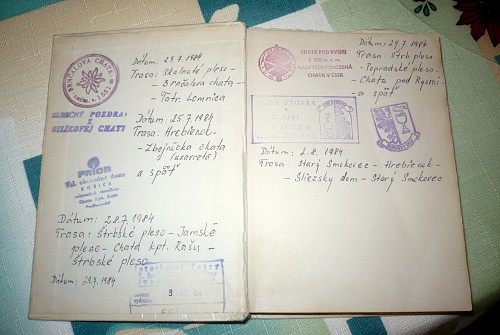 BRNČALOVA CHATA
Dátum: 23.7.1984
Trasa: Skalnaté pleso -
- Brnčalova chata -
- Tatr. Lomnica
SRDEČNÝ POZDRAV
Z
BILÍKOVEJ CHATY
Dátum: 25.7.1984
Trasa: Hrebienok -
- Zbojnícka chata
(uzavretá)
a späť
PRIOR
KOŠICE
Dátum: 28.7.1984
Trasa: Štrbské pleso - Jamské
pleso - Chata kpt. Rašu -
- Štrbské pleso
Dátum: 29.7.1984
CHATA POD RYSMI
NAJVYŠŠIE POLOŽENÁ
CHATA V ČSSR
Dátum: 29.7.1984
Trasa: Štrb. pleso -
- Popradské pleso -
- Chata pod Rysmi -
- a späť
Dátum: 2.8.1984
Trasa: Starý Smokovec - Hrebienok -
- Sliezsky dom - Starý Smokovec